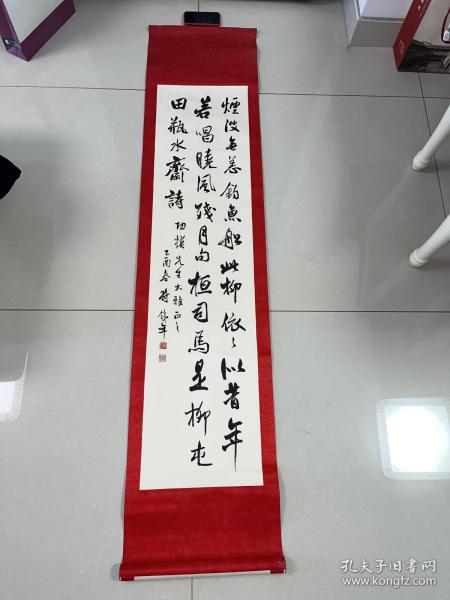 煙波無恙釣魚船此柳依依似昔年
若唱曉風殘月句桓司馬是柳屯
田瓶水齋詩
功樸先生大雅正之
乙酉春
孔夫子旧书网
www.kongfz.com